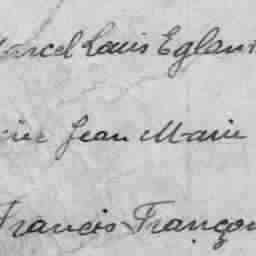 Marcel Louis Eglant
Jean Marie
Francis Françon